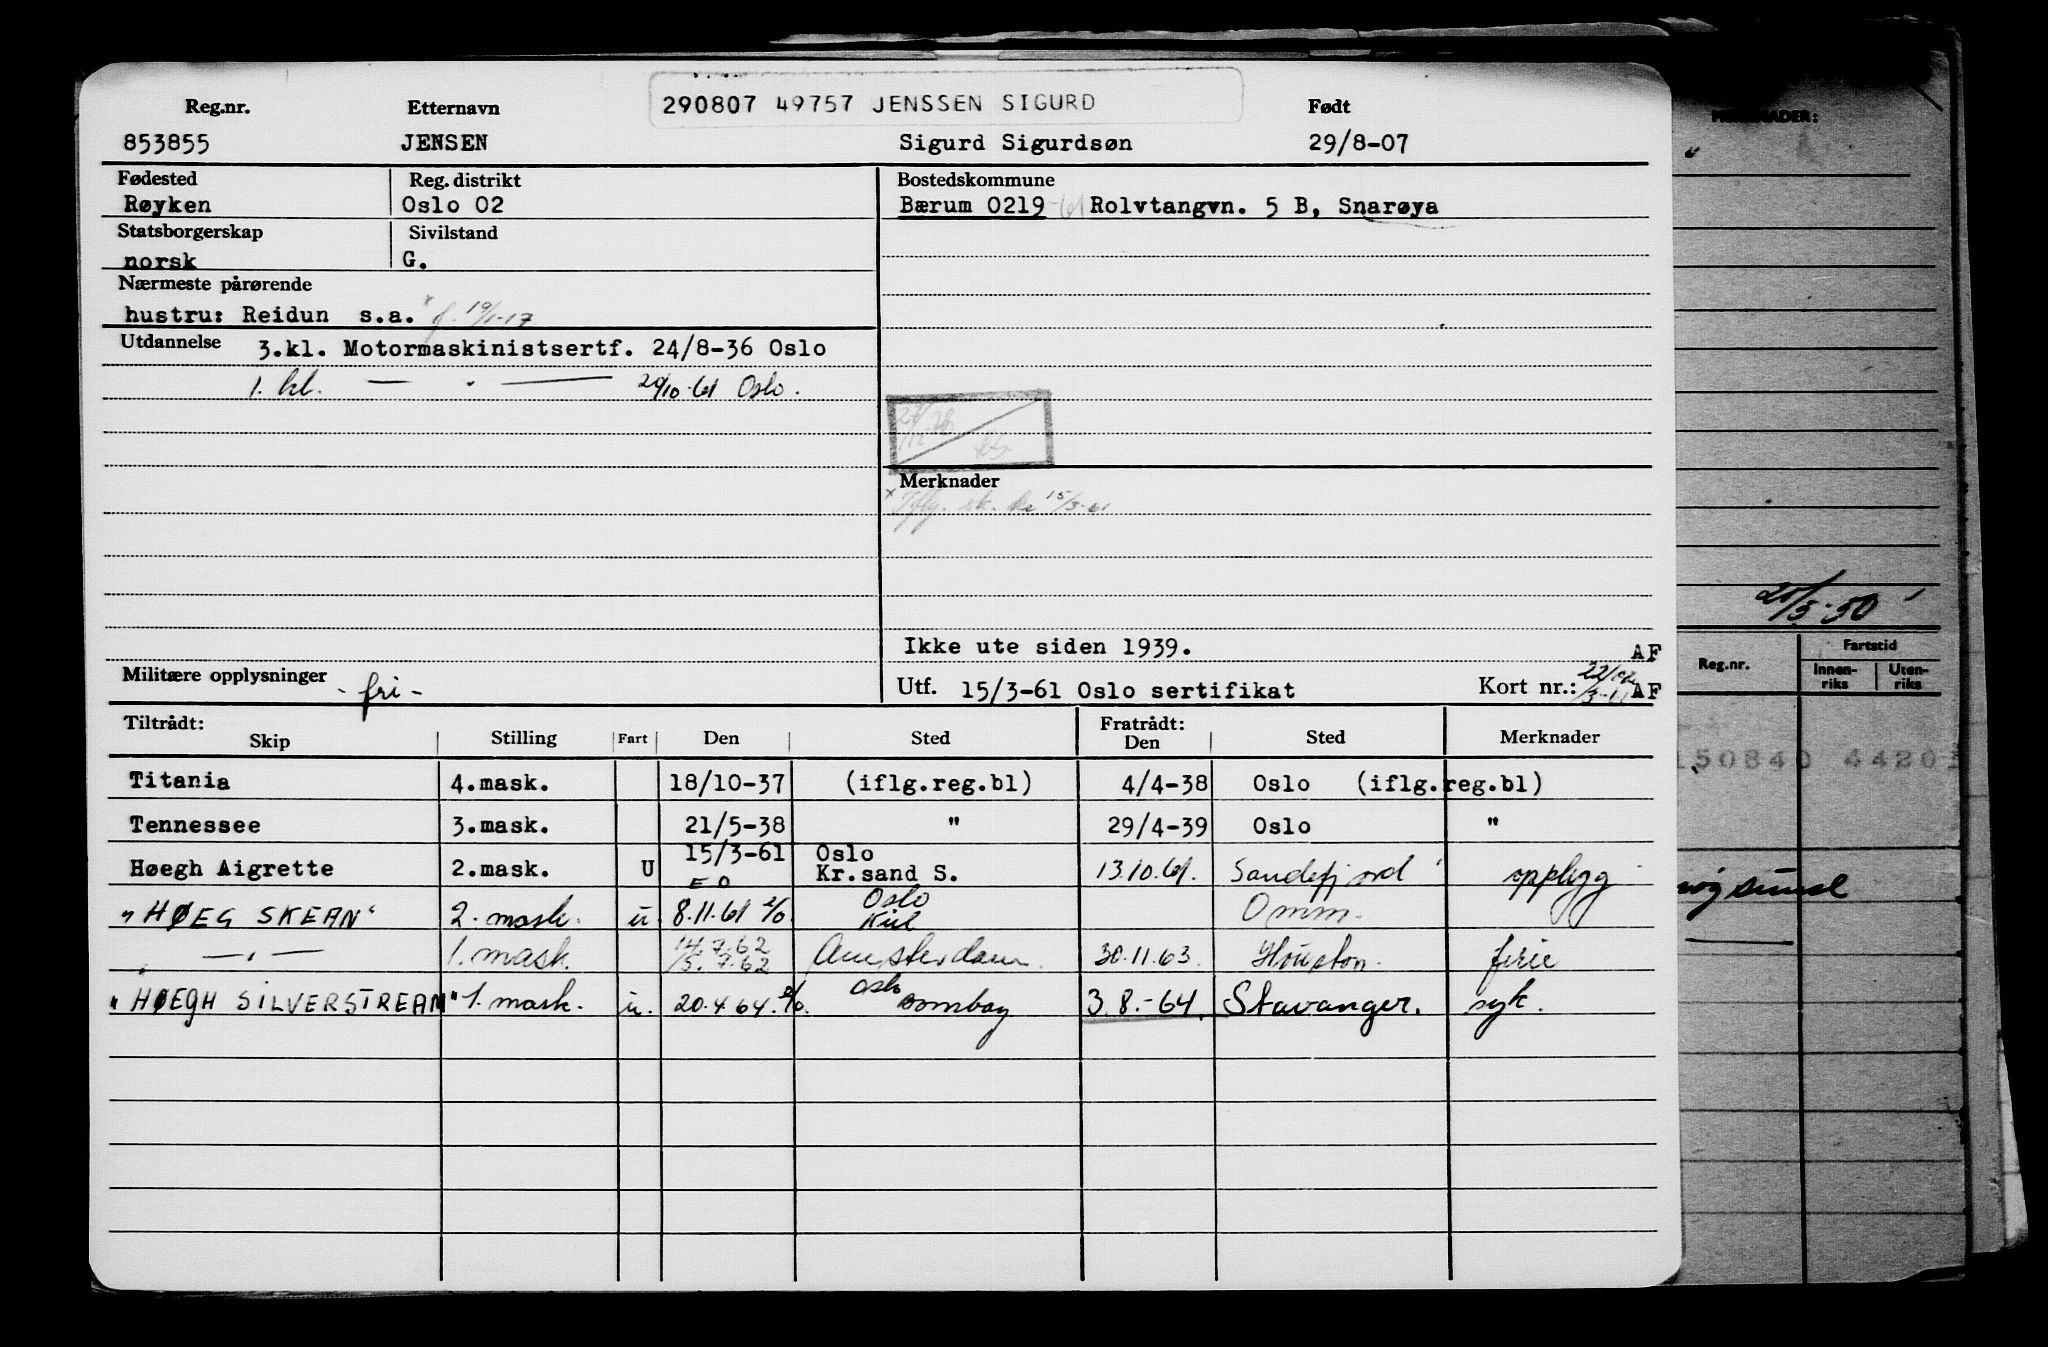 290807 49757 JENSSEN SIGURD
Reg.nr. Etternavn Født
853855 JENSEN Sigurd Sigurdsøn 29/8-07
Fødested Reg. distrikt Bostedskommune
Røyken Oslo 02 Bærum 0219 -61 Rolvtangvn. 5 B, Snarøya
Statsborgerskap Sivilstand
norsk G.
Nærmeste pårørende
hustru: Reidun s.a. x f. 19/1-17
Utdannelse 3.kl. Motormaskinistsertf. 24/8-36 Oslo
1. kl. — " — 20/10-61 Oslo.
Merknader
x Iflg. sk. 15/3-61
Ikke ute siden 1939. AF
Militære opplysninger - fri - Utf. 15/3-61 Oslo sertifikat Kort nr.: AF
Tiltrådt: Fratrådt:
Skip Stilling Fart Den Sted Den Sted Merknader
Titania 4.mask. 18/10-37 (iflg.reg.bl) 4/4-38 Oslo (iflg.reg.bl)
Tennessee 3.mask. 21/5-38 " 29/4-39 Oslo "
Høegh Aigrette 2.mask. U 15/3-61 E O Oslo Kr.sand S. 13.10.61. Sandefjord opplegg
"HØEG SKEAN" 2. mask. u. 8.11.61 Oslo Kiel Omm.
— " — 1. mask. 14.7.62 15.7.62 Amsterdam. 30.11.63. Houston. ferie
"HØEGH SILVERSTREAM" 1. mask. u. 20.4.64. Oslo Bombay 3.8.-64. Stavanger. syk.
MERKNADER:
"
25/5-50
Reg.nr. Fartstid
Innen-riks Uten-riks
150840 44203